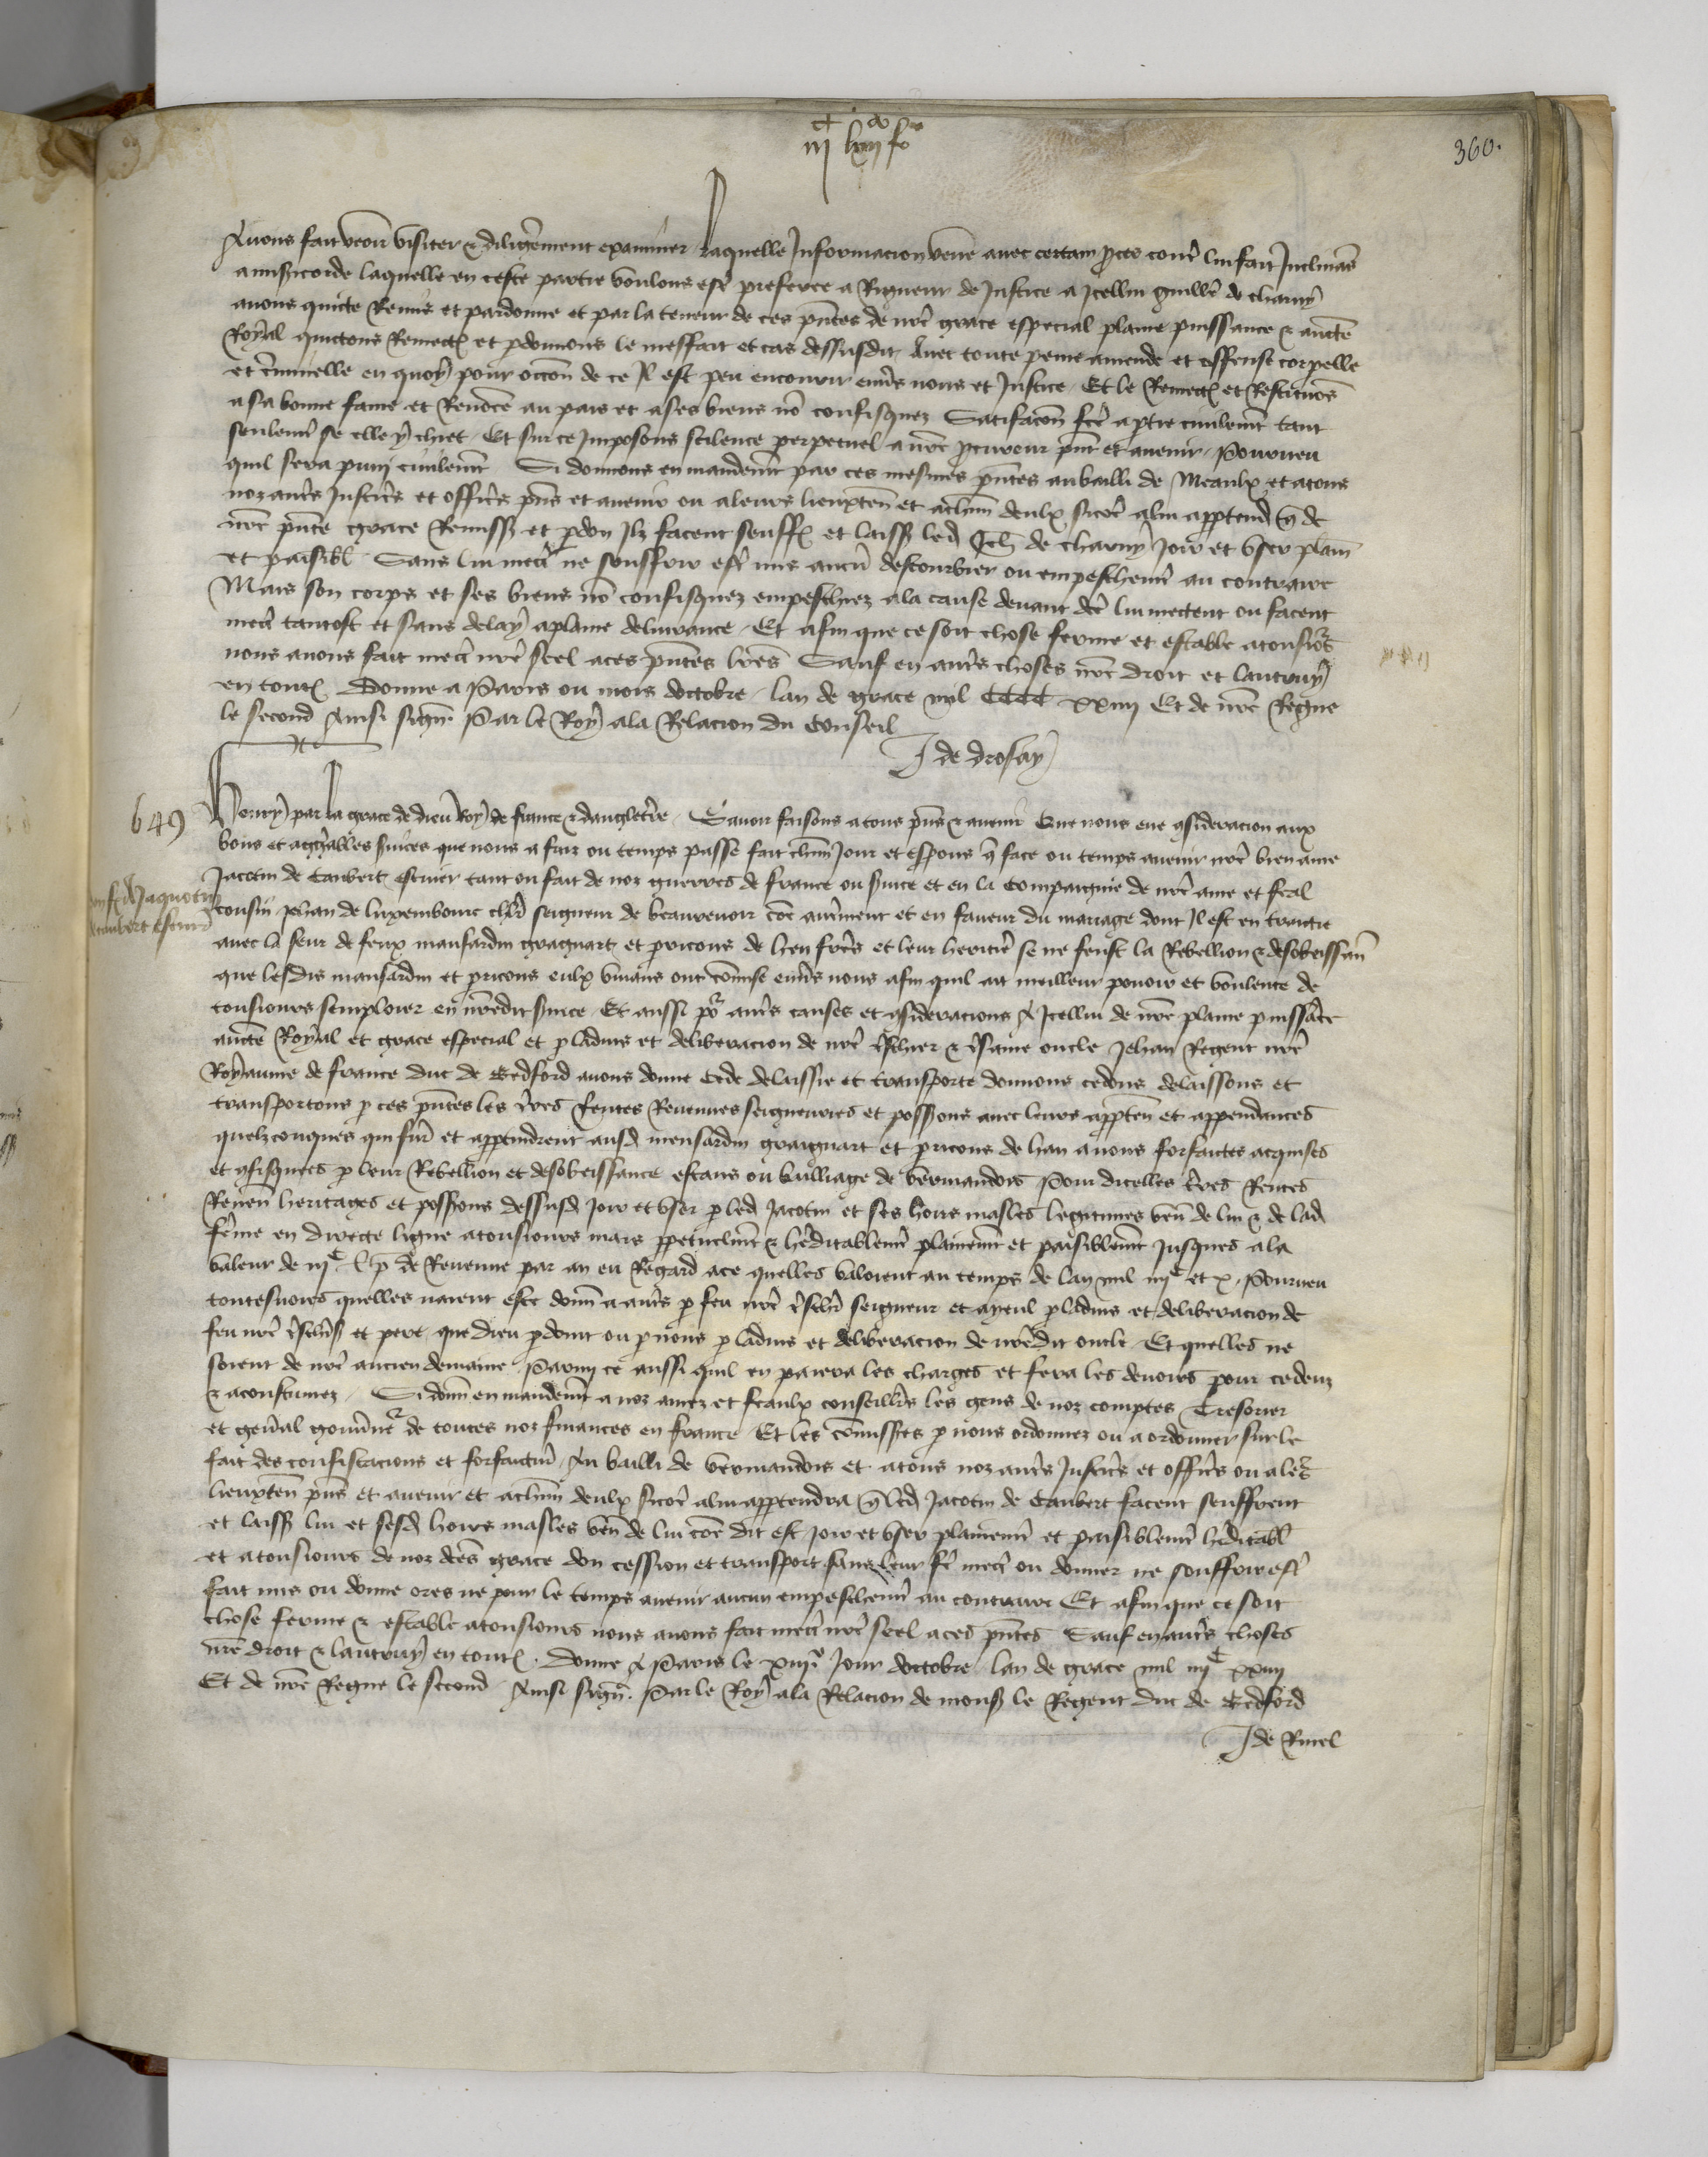 360.
Avons fait veoir visiter & diligemment examiner Laquelle Informacion veue avec certain proces contre lui fait Inclinans
a misericorde laquelle en ceste partie voulons estre preferee a Rigueur de Justice a Icellui Guillẽ de Charny
avons quicte Remis et pardonne et par la teneur de ces pñtes de nrẽ grace especial plaine puissance & auctẽ
Royal quictons Remectõs et pdonnons le meffait et cas dessusdit Avec toute peine amende et offense corpelle
et criminelle en quoy pour occõn de ce Il est peu encourir envers nous et Justice Et le Remectõs et Restituõs
a sa bonne fame et Renõee au pais et a ses biens nõ confisquez Satifacõn fcẽ a ptie civilemẽt tant
seulemẽt se elle y chiet Et sur ce Imposons scilence perpetuel a nrẽ pcureur pñt et avenir Pourveu
quil sera puny civilemẽt Si donnons en mandemẽt par ces mesmes pñtes au bailli de Meaulx et a tous
noz autrẽs Justicẽs et officẽs pñs et avenir ou a leurs lieuxtenẽ et a chũn deulx sicõe a lui apptendr̃ que de
nrẽ pñte grace Remissõ et pdon Ilz facent seuffrẽ et laissẽ led Jehã de Charny Joir et user plainẽ
et paisiblẽ Sans lui mectrẽ ne souffrir estrẽ mis aucũ destourbier ou empeschemẽt au contraire
Mais son corps et ses biens nõ confisquez empeschez a la cause devant dcẽ lui mectent ou facent
mectrẽ tantost et sans delay a plaine delivrance Et afin que ce soit chose ferme et estable a tousjõs
nous avons fait mectrẽ nrẽ seel a ces pñtes lrẽs Sauf en autrẽs choses nrẽ droit et lautruy
en toutẽs Donne a Paris ou mois doctobre lan de grace mil CCCC xxiiij Et de nrẽ Regne
le second Ainsi signẽ Par le Roy a la Relacion du Conseil
J de Drosay
649
Henry par la grace de dieu Roy de france & dangleterrẽ Savoir faisons a tous pñs & avenir Que nous eue qsideracion aux
bons et aggreables svices que nous a faiz ou temps passe fait chũn Jour et esperons q face ou temps avenir nrẽ bien ame
Jacotin de Cambert escuier tant ou fait de noz guerres de france ou svice et en la Compaignie de nrẽ ame et feal
cousin Jehan de luxembourc chlrẽ seigneur de beaurevoir cõe autremẽt et en faveur du mariage dont Il est en traictie
avec la seur de feux mansardin graignart et pricous de hen frẽs et leur heritierẽ se ne feust la Rebellion & desobeissanc̃
que lesdis mansardin et pricons eulx vivans ont cõmise envers nous afin quil ait meilleur povoir et voulente de
tousjours semploier en nrẽdit svice Et aussi pr autrẽs causes et qsideracions A Icellui de nrẽ plaine puissãce
auctẽ Royal et grace especial et p ladvis et deliberacion de nrẽ tschier & tsame oncle Jehan Regent nrẽ
Royaume de france duc de Bedford avons donne Cede delaissie et transporte donnons cedons delaissons et
transportons p ces pñtes les trẽs Rentes Revenues seigneuries et possons avec leurs apptenẽ et appendances
quelzconques qui furẽ et apptindrent ausd mensardin graignart et pricons de han a nous forfaictes acquises
et qfisquees p leur Rebellion et desobeissance estans ou bailliage de Vermandois Pour dicelles trẽs Rentes
Revenẽ heritages et possions dessusd Joir et user p led Jacotin et ses hoirs masles legitimes venẽ de lui & de lad
fem̃e en directe ligne a tousjours mais ppetuelmẽt & heditablemẽt plainemẽt et paisiblemẽt Jusques a la
valeur de iijC lp̃ de Revenue par an eu Regard a ce quelles valoient au temps de lan mil iiijC et x. Pourveu
toutesvoies quelles naient este donn a autrẽs p feu nrẽ tschrẽ seigneur et ayeul p ladvis et deliberacion de
feu nrẽ tschrẽ s et pere que Dieu pdoint ou p nous p ladvis et deliberacion de nrẽdit oncle Et quelles ne
soient de nrẽ ancien demaine Parmy ce aussi quil en paiera les charges et fera les devoirs pour ce deuz
& acoustumez Si donn en mandemẽt a noz amez et feaulx conseillers les gens de noz comptes Tresorier
et genẽal gouvernẽr de toutes noz finances en france Et les cõmissrẽs p nous ordonnez ou a ordonner sur le
fait des confiscacions et forfaictuẽ Au bailli de Vermandois et a tous noz autrẽs Justicẽs et officẽs ou a leurs
lieuxtenẽ pñs et avenir et a chũn deulx sicõe a lui apptendra q led Jacotin de Cambert facent seuffrent
et laissẽ lui et sesd hoirs masles venẽ de lui cõe dit est Joir et user plainemẽt et paisiblemẽt heditablẽ
et a tousjours de noz dcẽs grace don cession et transport sans leur frẽ mectrẽ ou donner ne souffrir estrẽ
fait mis ou donne ores ne pour le temps avenir aucun empeschemẽt au contraire Et afin que ce soit
chose ferme & estable a tousjours nous avons fait mectrẽ nrẽ seel a ces pñtes Sauf en autrẽs choses
nrẽ droit & lautruy en toutẽs. Donne A Paris le xiiije Jour doctobre lan de grace mil iiijC xxiiij
Et de nrẽ Regne le second Ainsi signẽ. Par le Roy a la Relacion de mons le Regent duc de Bedford
J de Rinel